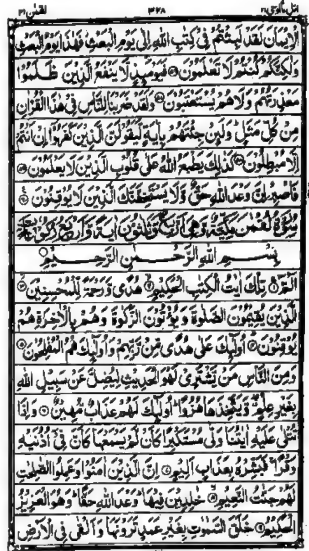 اتل ماۤ اوحی ۲۱ ۳۲۸ لقمٰن ۳۱
الْاِیْمَانَ لَقَدْ لَبِثْتُمْ فِیْ كِتٰبِ اللّٰهِ اِلٰى یَوْمِ الْبَعْثِ فَهٰذَا یَوْمُ الْبَعْثِ
وَلٰكِنَّكُمْ كُنْتُمْ لَا تَعْلَمُوْنَ فَیَوْمَىِٕذٍ لَّا یَنْفَعُ الَّذِیْنَ ظَلَمُوْا
مَعْذِرَتُهُمْ وَلَا هُمْ یُسْتَعْتَبُوْنَ وَلَقَدْ ضَرَبْنَا لِلنَّاسِ فِیْ هٰذَا الْقُرْاٰنِ
مِنْ كُلِّ مَثَلٍ وَلَىِٕنْ جِئْتَهُمْ بِاٰیَةٍ لَّیَقُوْلَنَّ الَّذِیْنَ كَفَرُوْۤا اِنْ اَنْتُمْ
اِلَّا مُبْطِلُوْنَ كَذٰلِكَ یَطْبَعُ اللّٰهُ عَلٰى قُلُوْبِ الَّذِیْنَ لَا یَعْلَمُوْنَ
فَاصْبِرْ اِنَّ وَعْدَ اللّٰهِ حَقٌّ وَّلَا یَسْتَخِفَّنَّكَ الَّذِیْنَ لَا یُوْقِنُوْنَ
سُوْرَةُ لُقْمٰنَ مَكِّیَّةٌ وَّهِیَ اَرْبَعٌ وَّثَلٰثُوْنَ اٰیَةً وَّاَرْبَعُ رُكُوْعَاتٍ
بِسْمِ اللّٰهِ الرَّحْمٰنِ الرَّحِیْمِ
الٓمّٓ تِلْكَ اٰیٰتُ الْكِتٰبِ الْحَكِیْمِ هُدًى وَّرَحْمَةً لِّلْمُحْسِنِیْنَ
الَّذِیْنَ یُقِیْمُوْنَ الصَّلٰوةَ وَیُؤْتُوْنَ الزَّكٰوةَ وَهُمْ بِالْاٰخِرَةِ هُمْ
یُوْقِنُوْنَ اُولٰٓىِٕكَ عَلٰى هُدًى مِّنْ رَّبِّهِمْ وَاُولٰٓىِٕكَ هُمُ الْمُفْلِحُوْنَ
وَمِنَ النَّاسِ مَنْ یَّشْتَرِیْ لَهْوَ الْحَدِیْثِ لِیُضِلَّ عَنْ سَبِیْلِ اللّٰهِ
بِغَیْرِ عِلْمٍ وَّیَتَّخِذَهَا هُزُوًا اُولٰٓىِٕكَ لَهُمْ عَذَابٌ مُّهِیْنٌ وَاِذَا
تُتْلٰى عَلَیْهِ اٰیٰتُنَا وَلّٰى مُسْتَكْبِرًا كَاَنْ لَّمْ یَسْمَعْهَا كَاَنَّ فِیْۤ اُذُنَیْهِ
وَقْرًا فَبَشِّرْهُ بِعَذَابٍ اَلِیْمٍ اِنَّ الَّذِیْنَ اٰمَنُوْا وَعَمِلُوا الصّٰلِحٰتِ
لَهُمْ جَنّٰتُ النَّعِیْمِ خٰلِدِیْنَ فِیْهَا وَعْدَ اللّٰهِ حَقًّا وَهُوَ الْعَزِیْزُ
الْحَكِیْمُ خَلَقَ السَّمٰوٰتِ بِغَیْرِ عَمَدٍ تَرَوْنَهَا وَاَلْقٰى فِی الْاَرْضِ